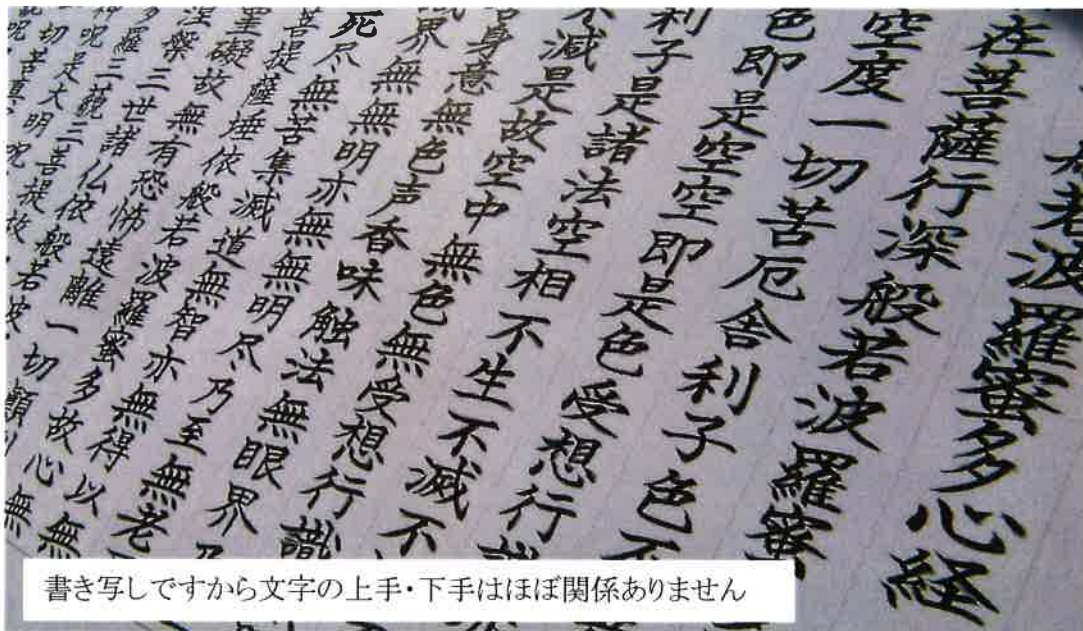 若波羅蜜多心経
在菩薩行深般若波羅蜜
空度一切苦厄舎利子色不
色即是空空即是色受想行識
利子是諸法空相不生不滅不
不滅是故空中無色無受想行識
身意無色声香味触法無眼界乃
識界無無明亦無無明尽乃至無老
死尽無苦集滅道無智亦無得以無
菩提薩埵依般若波羅蜜多故心無
罣礙故無有恐怖遠離一切顛倒
涅槃三世諸仏依般若波
多羅三藐三菩提故
神呪是大明呪
切苦真
書き写しですから文字の上手・下手はほぼ関係ありません